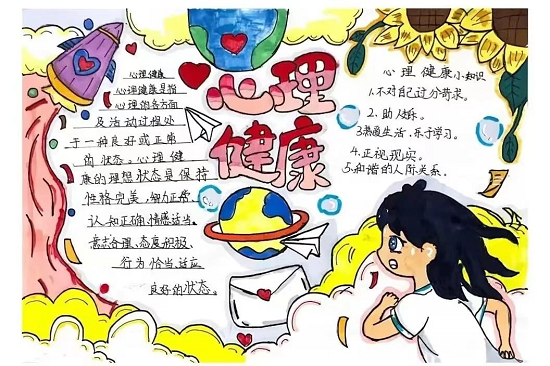 心理健康
心理健康
心理健康是指
心理的各方面
及活动过程处
于一种良好或正常
的状态。心理健
康的理想状态是保持
性格完美、智力正常、
认知正确、情感适当。
意志合理、态度积极、
行为恰当、适应
良好的状态。
心理健康小知识
1.不对自己过分苛求。
2.助人为乐。
3.热爱生活,乐于学习。
4.正视现实。
5.和谐的人所关系。